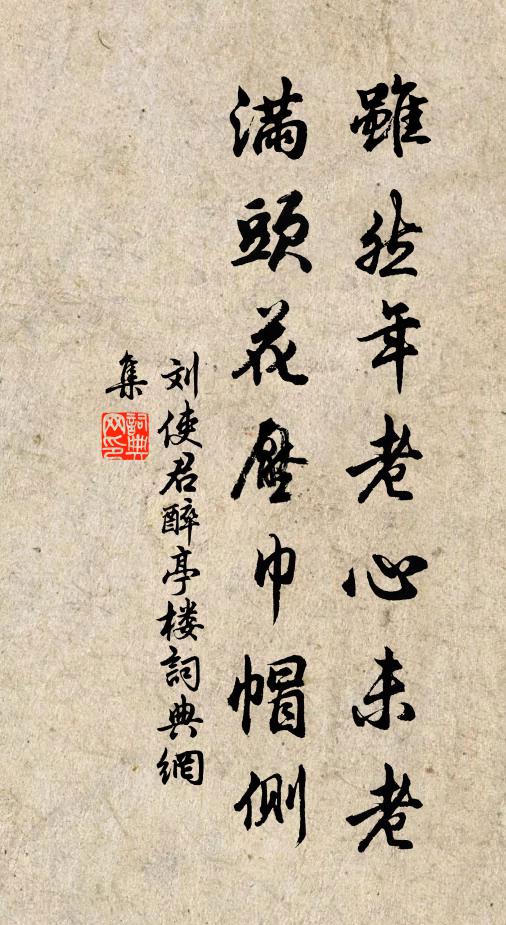 雖然年老心未老
滿頭花壓巾帽側
刘使君醉亭楼詞典網
集
詞典网印